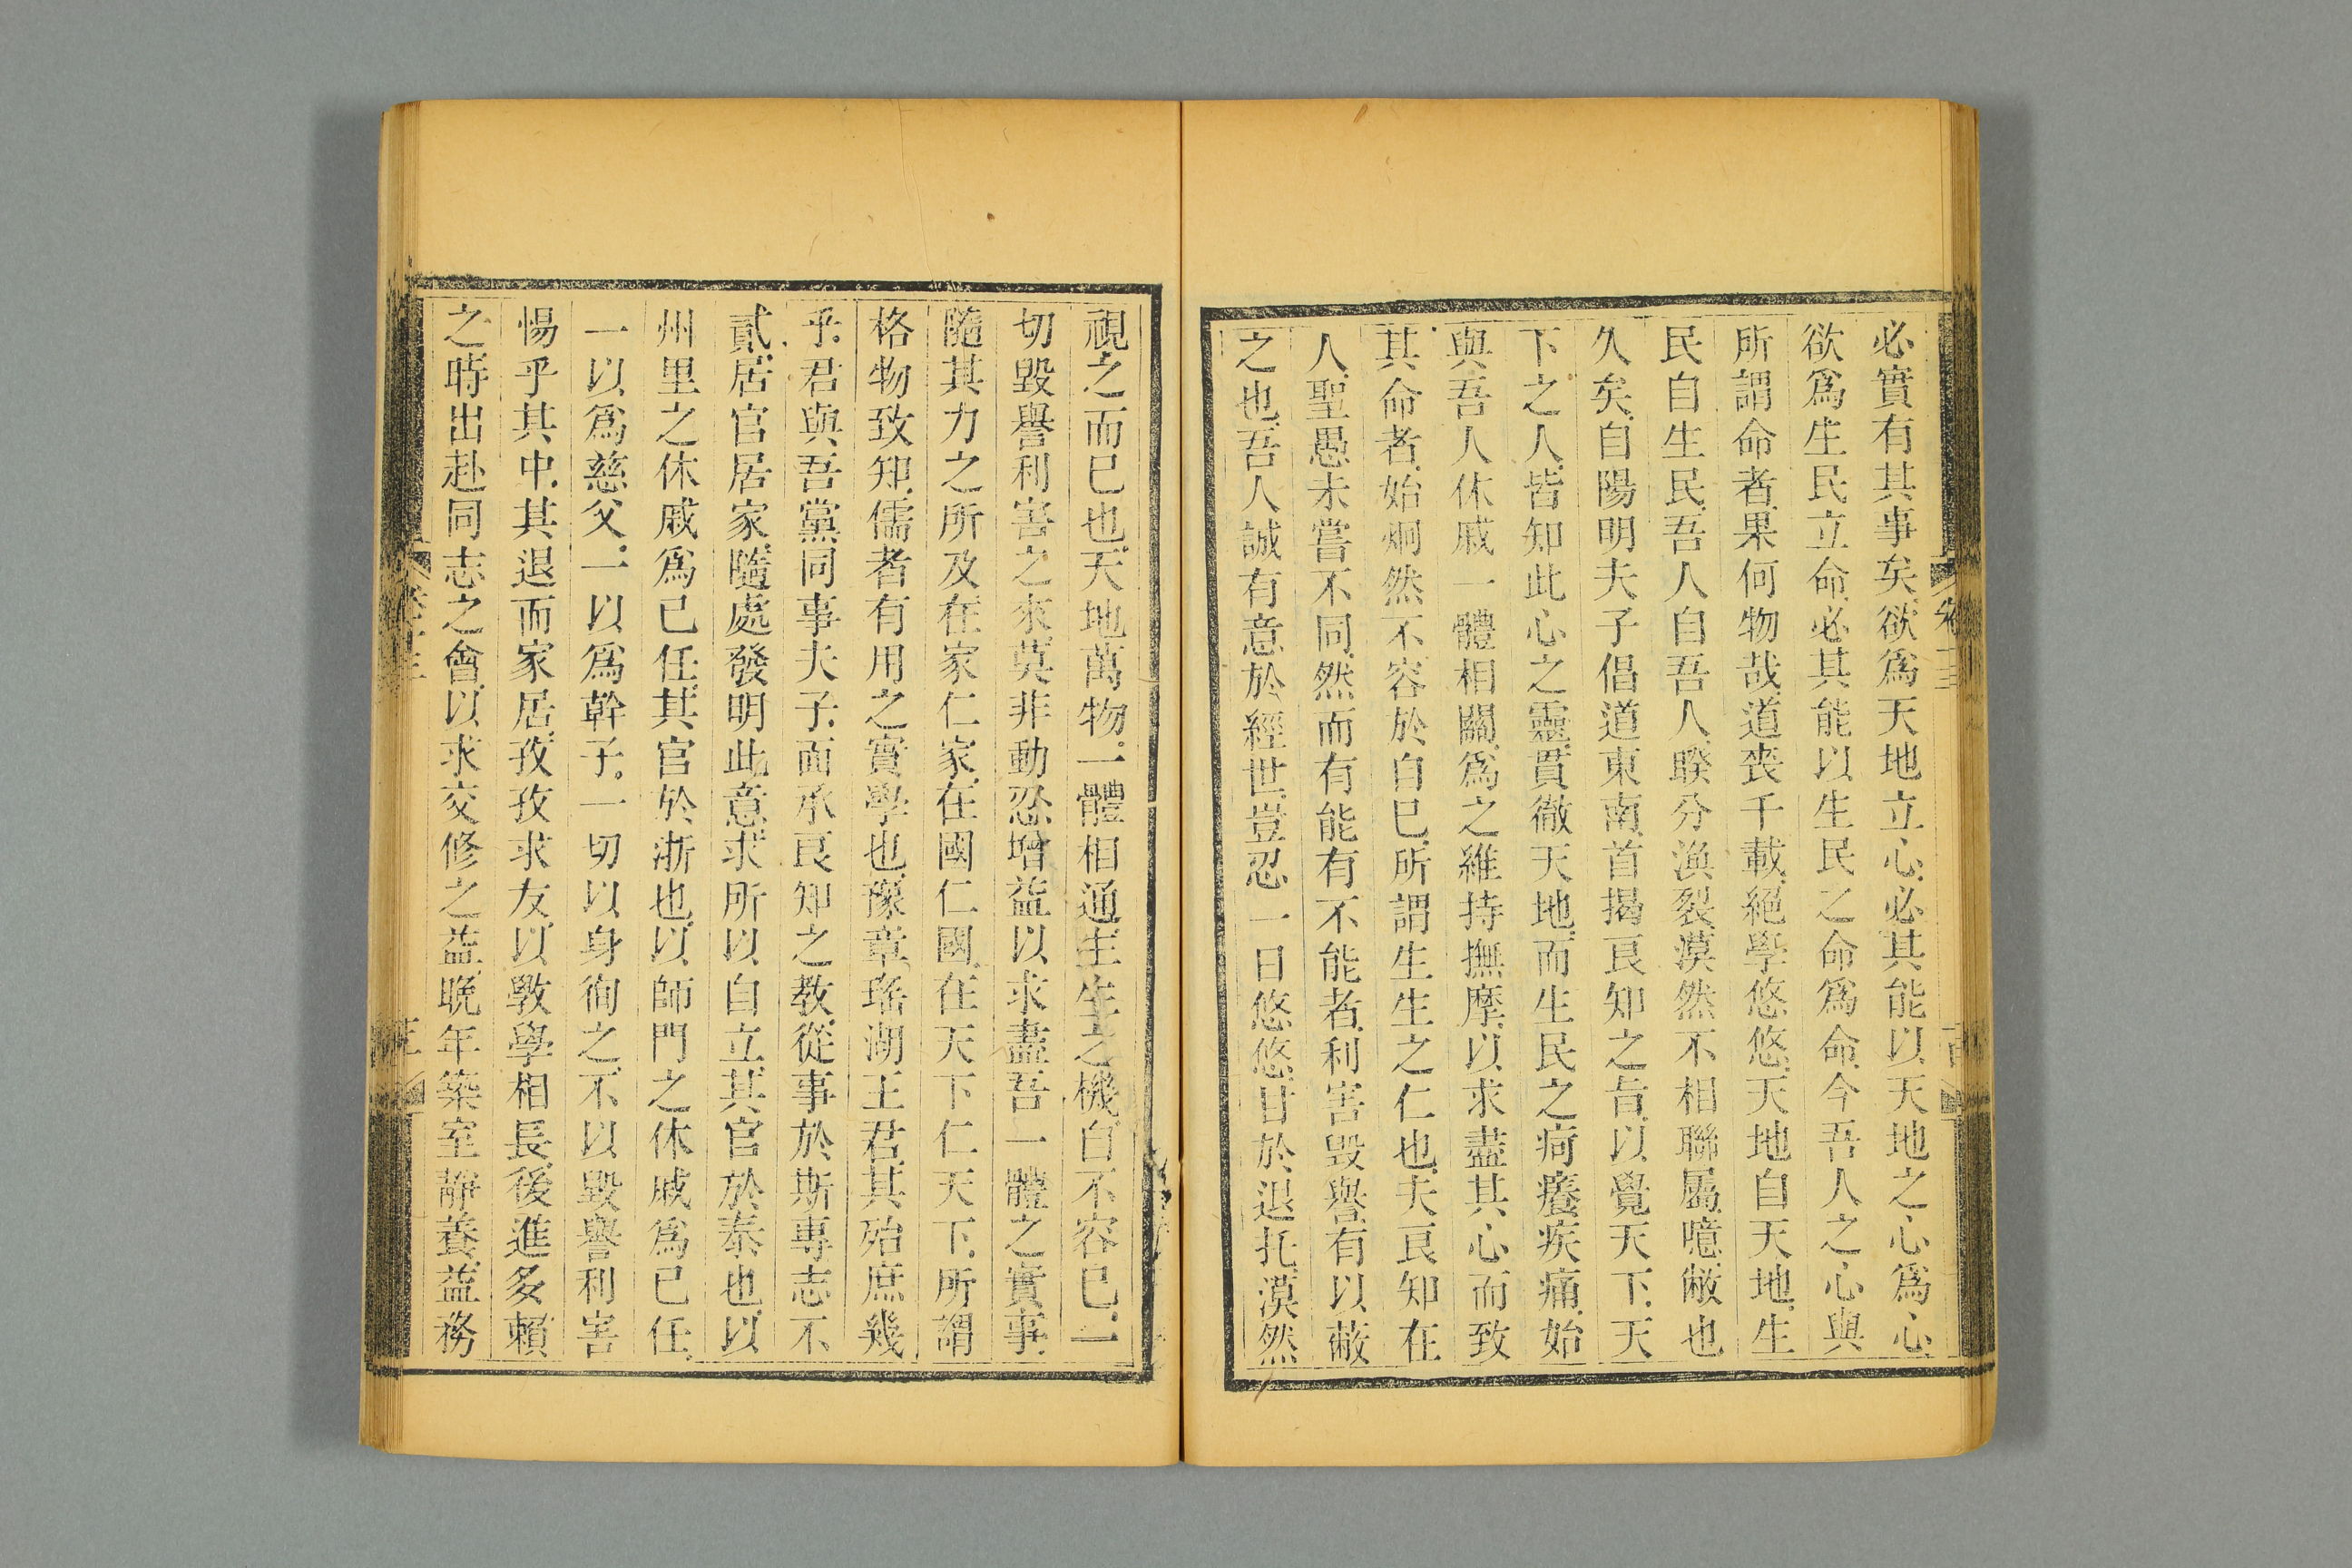 必實有其事矣欲爲天地立心必其能以天地之心爲心
欲爲生民立命必其能以生民之命爲命今吾人之心與
所謂命者果何物哉道喪千載絕學悠悠天地自天地生
民自生民吾人自吾人睽分渙裂漠然不相聯屬噫敝也
久矣自陽明夫子倡道東南首揭良知之旨以覺天下天
下之人皆知此心之靈貫徹天地而生民之疴癢疾痛始
與吾人休戚一體相關爲之維持撫摩以求盡其心而致
其命者始炯然不容於自已所謂生生之仁也夫良知在
人聖愚未嘗不同然而有能有不能者利害毀譽有以蔽
之也吾人誠有意於經世豈忍一日悠悠甘於退托漠然
視之而已也天地萬物一體相通生生之機自不容已一
切毀譽利害之來莫非動忍增益以求盡吾一體之實事
隨其力之所及在家仁家在國仁國在天下仁天下所謂
格物致知儒者有用之實學也豫章瑤湖王君其殆庶幾
乎君與吾黨同事夫子面承良知之教從事於斯專志不
貳居官居家隨處發明此意求所以自立其官於泰也以
州里之休戚爲已任其官於浙也以師門之休戚爲已任
一以爲慈父一以爲幹子一切以身徇之不以毀譽利害
惕乎其中其退而家居孜孜求友以斆學相長後進多賴
之時出赴同志之會以求交修之益晚年築室靜養益務